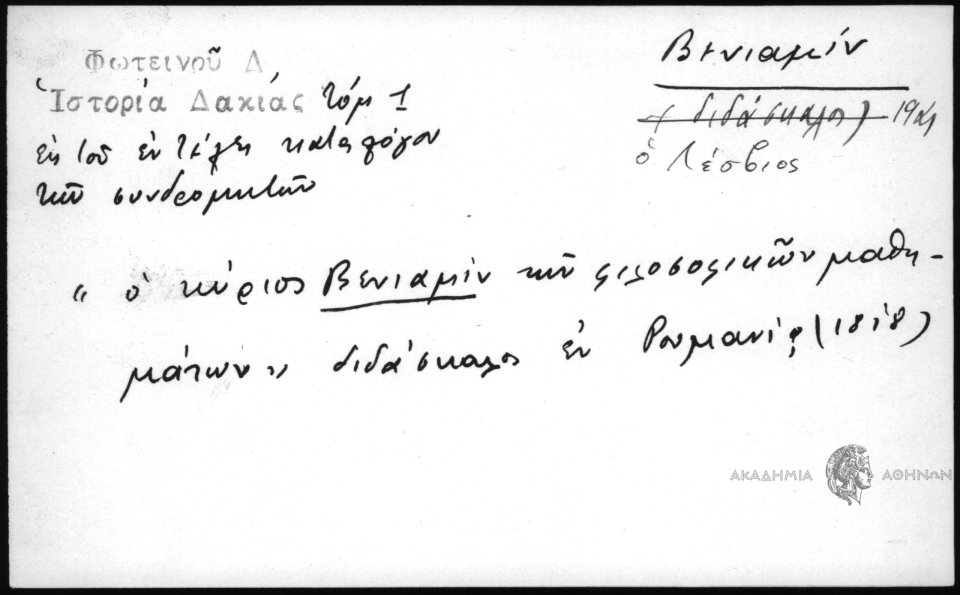 Φωτεινοῦ Δ
Ἱστορία Δακίας τόμ 1
ἐκ τοῦ ἐν τέλει καταλόγου
τῶν συνδρομητῶν
Βενιαμίν
(διδάσκαλος)
ὁ Λέσβιος
" ὁ κύριος Βενιαμίν τῶν φιλοσοφικῶν μαθη-
μάτων" διδάσκαλος ἐν Ρουμανίᾳ (1818)
ΑΚΑΔΗΜΙΑ ΑΘΗΝΩΝ